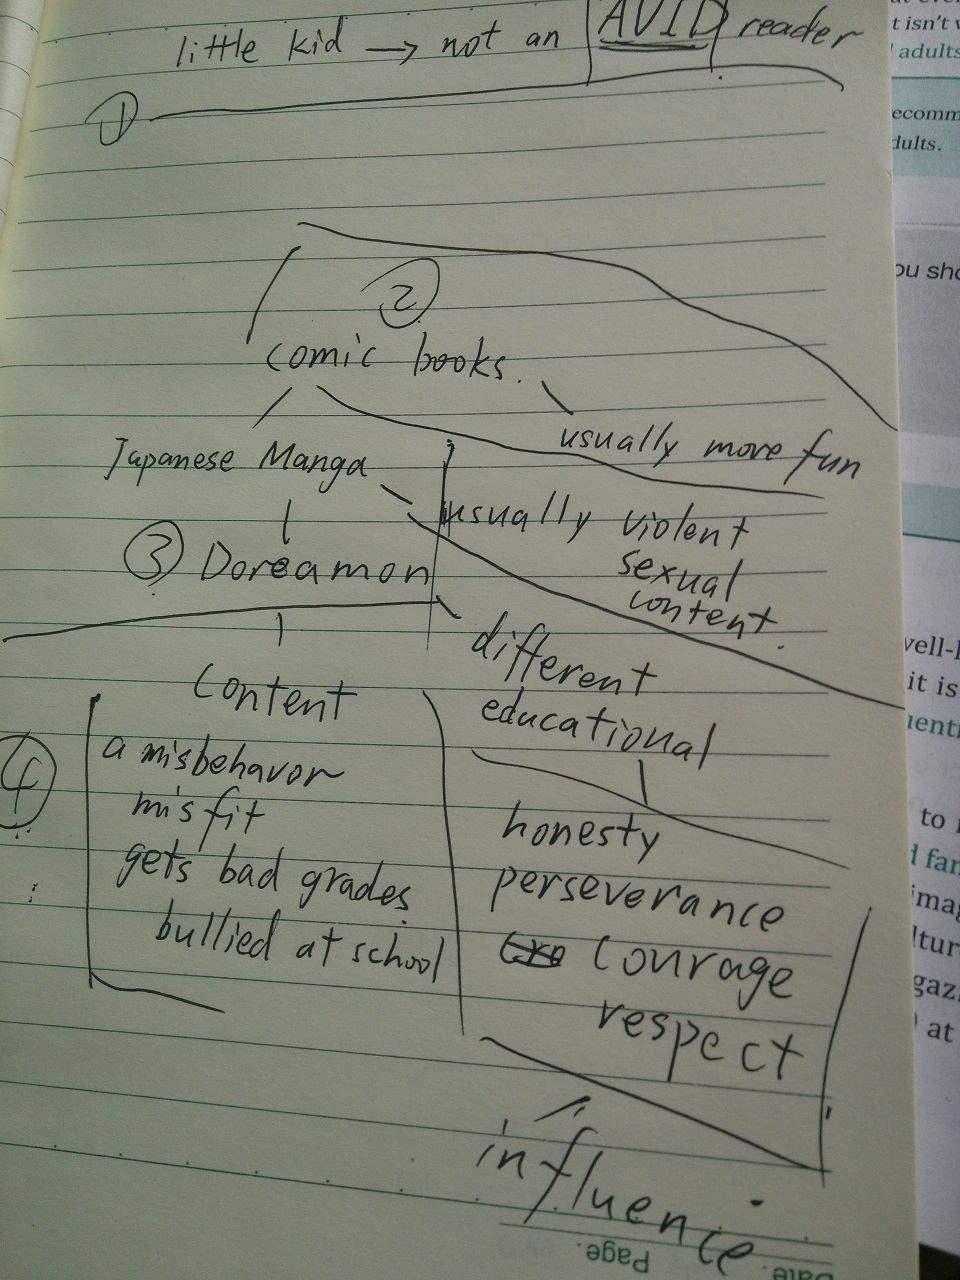 little kid → not an AVID reader
1
2
comic books.
usually more fun
Japanese Manga
usually violent
sexual
content.
3 Doreamon
different
educational
Content
4
a misbehavor
misfit
gets bad grades.
bullied at school
honesty
perseverance
Courage
respect
influence
Page.
Date.
t isn't
adults
ecomm
dults.
ou sho
well-
it is
uenti
to
d fan
imag
ltur
gaz
at